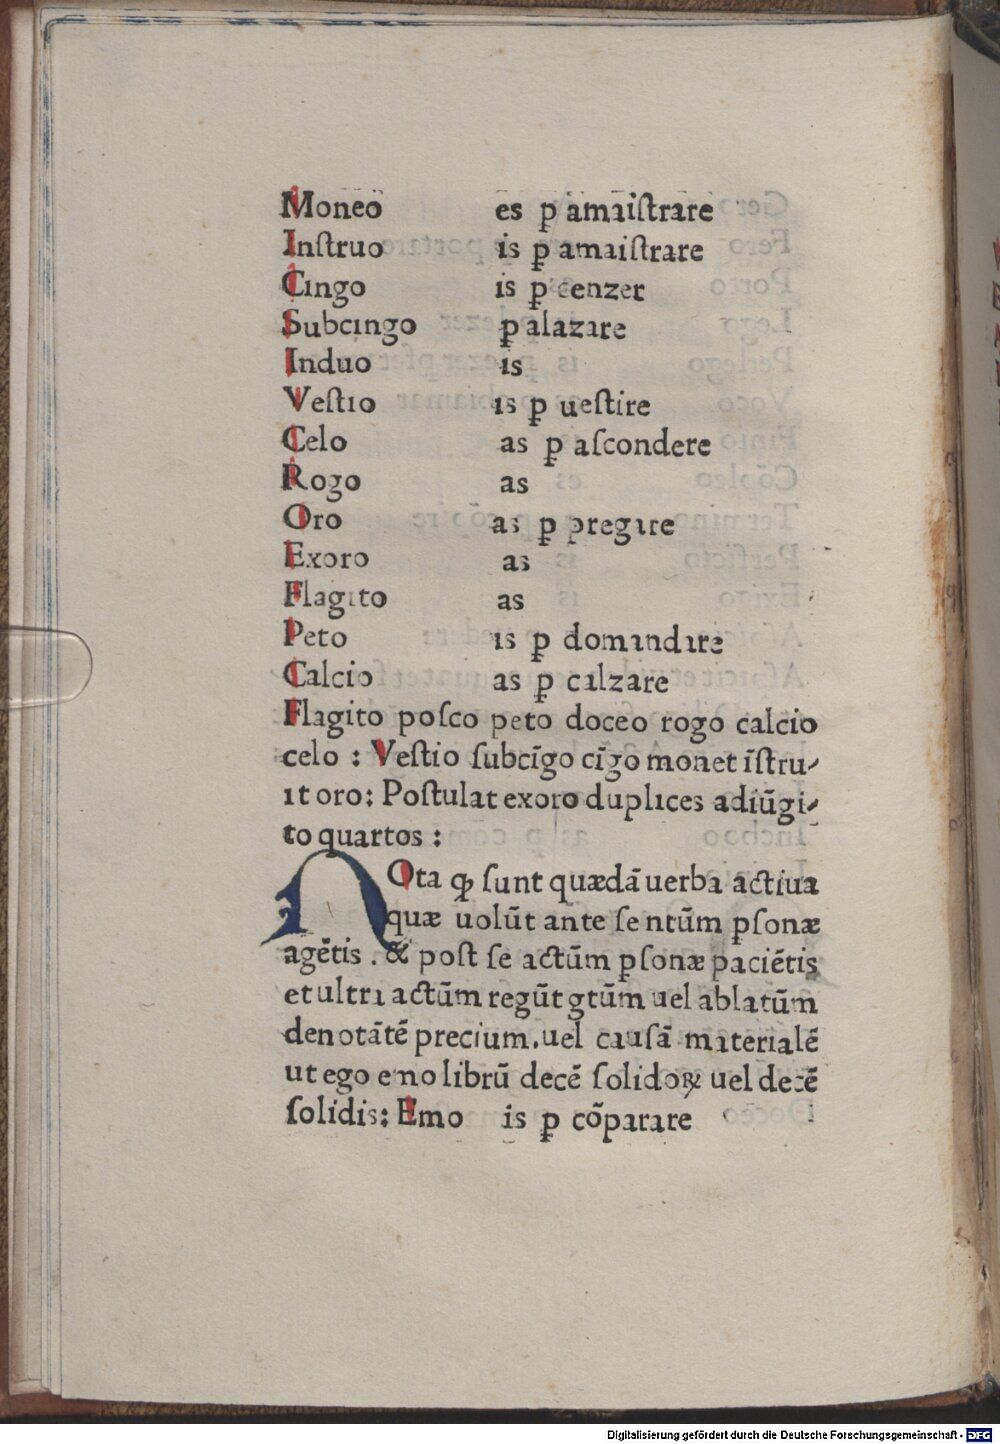 Moneo es ꝑ amaiſtrare
Inſtruo is ꝑ amaiſtrare
Cingo is ꝑ cenzer
Subcingo ꝑ alazare
Induo is
Veſtio is ꝑ ueſtire
Celo as ꝑ aſcondere
Rogo as
Oro as ꝑ pregare
Exoro as
Flagito as
Peto is ꝑ domandare
Calcio as ꝑ calzare
Flagito poſco peto doceo rogo calcio
celo : Veſtio ſubcīgo cīgo monet īſtru⸗
it oro: Poſtulat exoro duplices adiūgi⸗
to quartos :
NOta ꝙ ſunt quædā uerba actiua
quæ uolūt ante ſe ntūm ꝑſonæ
agētis . & poſt ſe actūm ꝑſonæ paciētis
et ultra actūm regūt gtūm uel ablatūm
denotātē precium. uel cauſā materialē
ut ego emo librū decē ſolidoꝝ uel decē
ſolidis: Emo is ꝑ cōparare
Digitalisierung gefördert durch die Deutsche Forschungsgemeinschaft - DFG